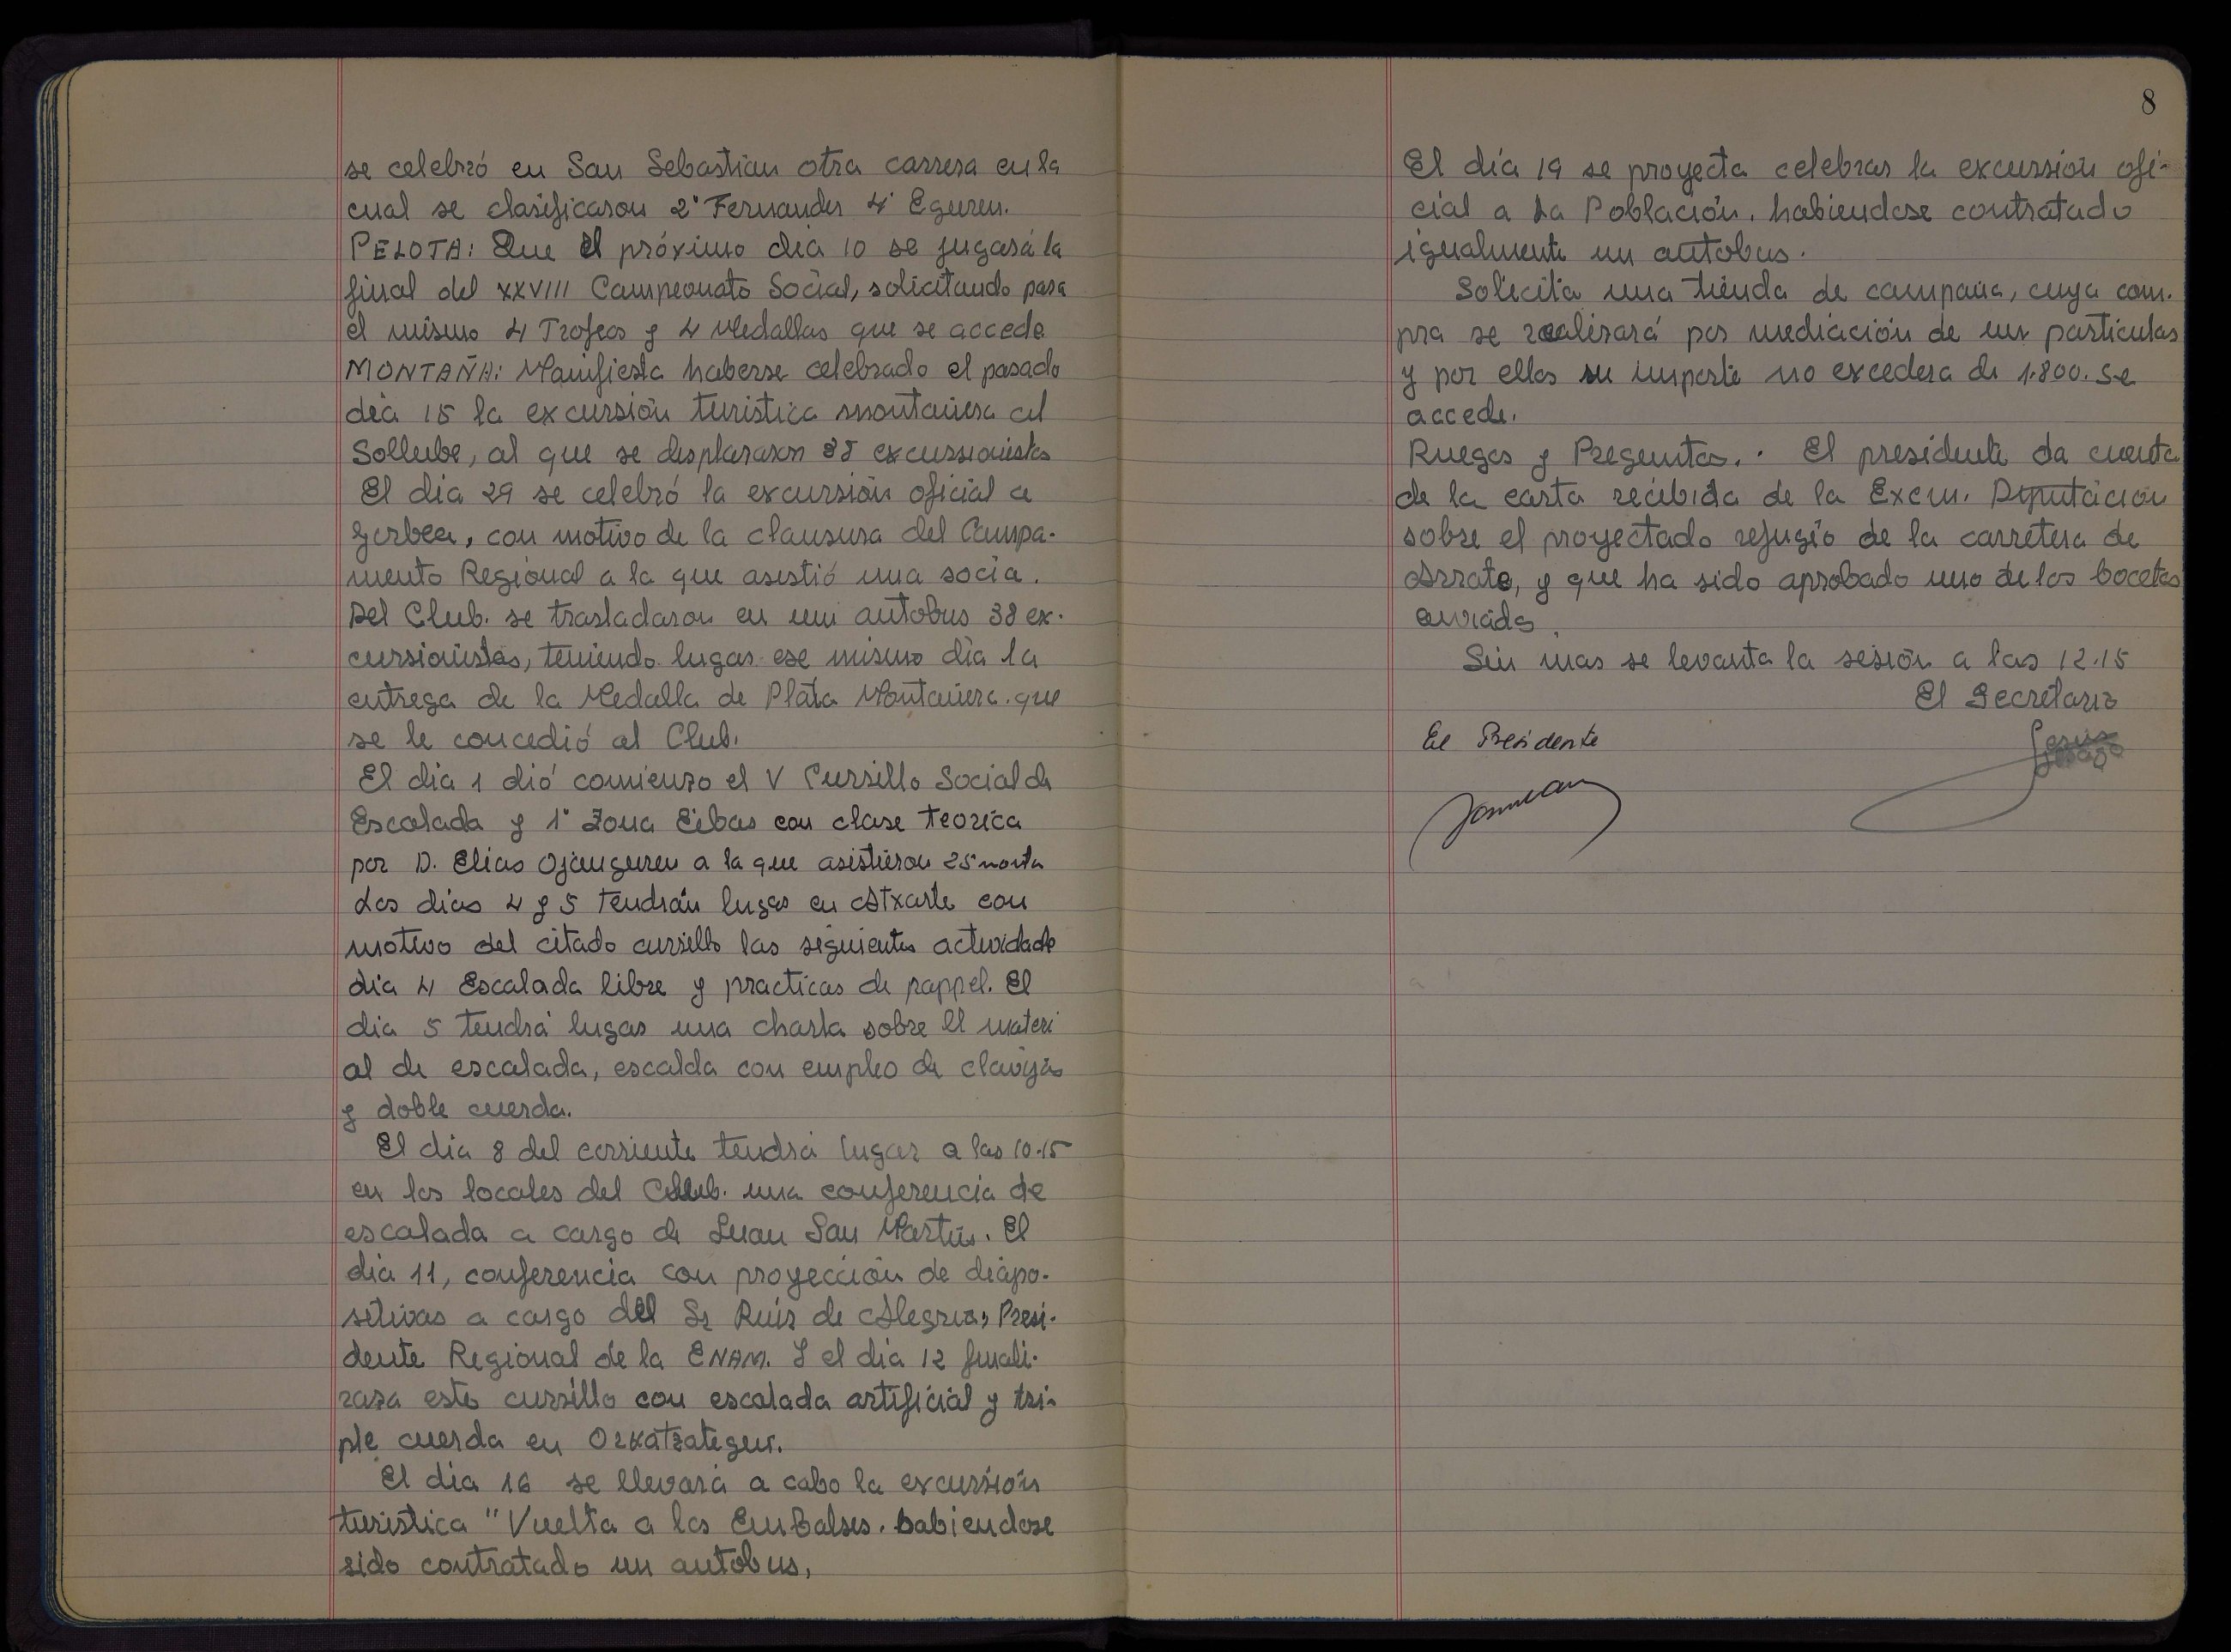 se celebró en San Sebastian otra carrera en la
cual se clasificaron 2º Fernandez 4º Eguren.
PELOTA: Que el próximo dia 10 se jugará la
final del XXVIII Campeonato Social, solicitando para
el mismo 4 Trofeos y 4 Medallas que se accede
MONTAÑA: Manifiesta haberse celebrado el pasado
dia 15 la excursión turistica montañera al
Sollube, al que se desplazaron 38 excursionistas
El dia 29 se celebró la excursión oficial a
Gorbea, con motivo de la clausura del Campa-
mento Regional a la que asistió una socia.
Del Club. se trasladaron en un autobus 38 ex-
cursionistas, teniendo lugar ese mismo dia la
entrega de la Medalla de Plata Montañera. que
se le concedió al Club.
El dia 1 dió comienzo el V Cursillo Social de
Escalada y 1º Zona Eibar con clase teorica
por D. Elias Ojanguren a la que asistieron 25 monta
Los dias 4 y 5 tendrán lugar en Atxarte con
motivo del citado cursillo las siguientes actividade
dia 4 Escalada libre y practicas de rappel. El
dia 5 tendrá lugar una charla sobre el materi
al de escalada, escalda con empleo de clavijas
y doble cuerda.
El dia 8 del corriente tendrá lugar a las 10.15
en los locales del Club. una conferencia de
escalada a cargo de Juan San Martin. El
dia 11, conferencia con proyección de diapo-
sitivas a cargo del Sr Ruiz de Alegria, Presi-
dente Regional de la ENAM. Y el dia 12 finali-
zara este cursillo con escalada artificial y tri-
ple cuerda en Orkatzategui.
El dia 16 se llevará a cabo la excursión
turistica "Vuelta a los Embalses. habiendose
sido contratado un autobus,
8
El día 19 se proyecta celebrar la excursión ofi-
cial a La Población. habiendose contratado
igualmente un autobus.
Solicita una tienda de campaña, cuya com-
pra se realizará por mediación de un particular
y por ellos su importe no excedera de 1.800. Se
accede.
Ruegos y Preguntas.- El presidente da cuenta
de la carta recibida de la Excm. Diputación
sobre el proyectado refugio de la carretera de
Arrate, y que ha sido aprobado uno de los bocetos
enviados.
Sin mas se levanta la sesión a las 12.15
El Secretario
El Presidente